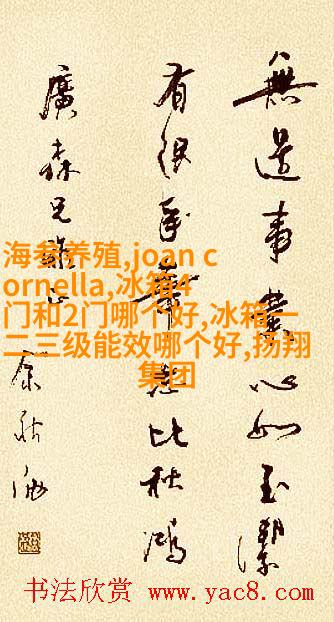 無事心如玉潔
有比秋鴻
廣森兄雅正
余秋雨
海参养殖,joan c
ornella,冰箱4
门和2门哪个好,冰箱一
二三级能效哪个好,扬翔
集团
书法欣赏 www.yac8.com